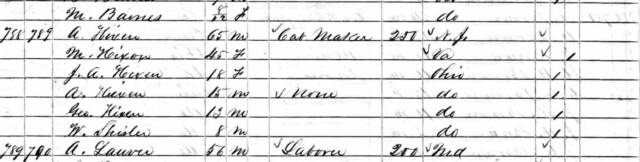 M. Barnes 22 F do
758 789 A. Hixen 65 M Cab Maker 250 N.J.
M. Hixon 45 F Va 1
J. A. Hixen 18 F Ohio 1
A. Hixen 15 M None do 1
Geo. Hixen 13 M do 1
W. Shisler 8 M do 1
789 790 A. Lauver 56 M Laborer 200 Md